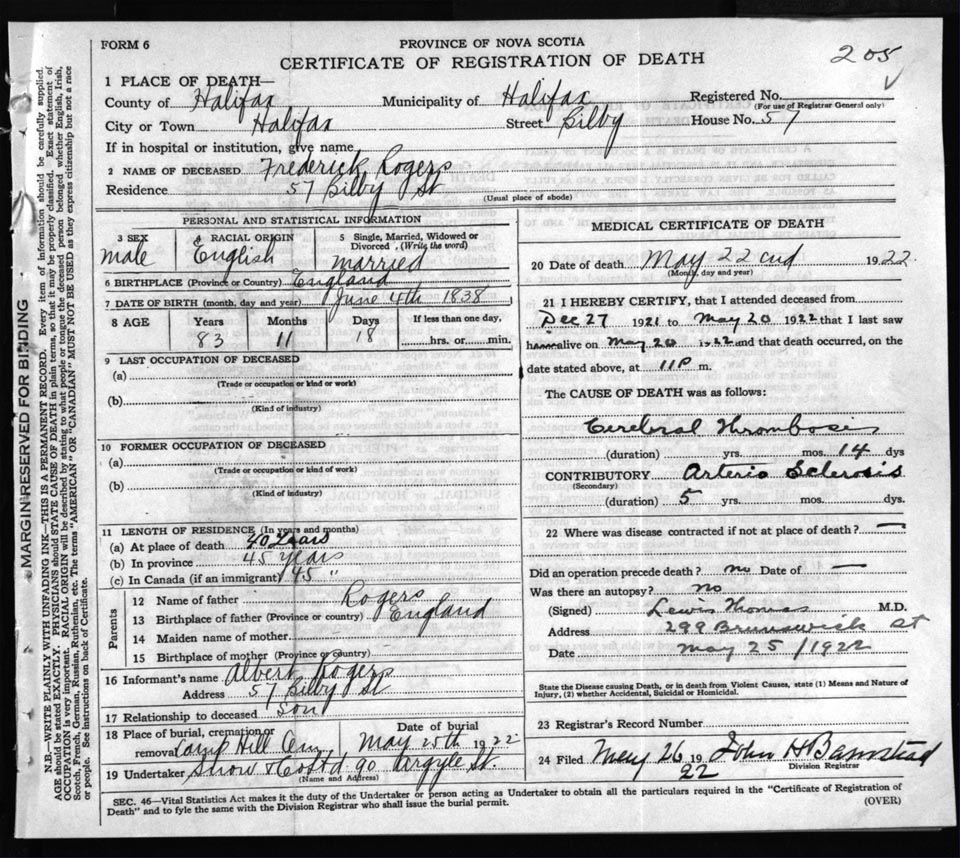 FORM 6
PROVINCE OF NOVA SCOTIA
CERTIFICATE OF REGISTRATION OF DEATH
205
1 PLACE OF DEATH—
County of Halifax Municipality of Halifax Registered No.
(For use of Registrar General only)
City or Town Halifax Street Bilby House No. 57
If in hospital or institution, give name
2 NAME OF DECEASED Frederick Rogers
Residence 57 Bilby St
(Usual place of abode)
PERSONAL AND STATISTICAL INFORMATION
3 SEX 4 RACIAL ORIGIN 5 Single, Married, Widowed or Divorced. (Write the word)
male English married
6 BIRTHPLACE (Province or Country) England
7 DATE OF BIRTH (month, day and year) June 4th 1838
8 AGE Years Months Days If less than one day,
83 11 18 hrs. or min.
9 LAST OCCUPATION OF DECEASED
(a)
(Trade or occupation or kind of work)
(b)
(Kind of industry)
10 FORMER OCCUPATION OF DECEASED
(a)
(Trade or occupation or kind of work)
(b)
(Kind of industry)
11 LENGTH OF RESIDENCE (In years and months)
(a) At place of death 40 years
(b) In province 45 years
(c) In Canada (if an immigrant) 45 "
Parents
12 Name of father Rogers
13 Birthplace of father (Province or country) England
14 Maiden name of mother
15 Birthplace of mother (Province or country)
16 Informant's name Albert Rogers
Address 57 Bilby St
17 Relationship to deceased son
18 Place of burial, cremation or removal Camp Hill Cem Date of burial May 25th 1922
19 Undertaker Snow & Co Ltd 90 Argyle St
(Name and Address)
MEDICAL CERTIFICATE OF DEATH
20 Date of death May 22 1922
(Month, day and year)
21 I HEREBY CERTIFY, that I attended deceased from
Dec 27 1921 to May 20 1922 that I last saw
h alive on May 20 1922 and that death occurred, on the
date stated above, at 11 P m.
The CAUSE OF DEATH was as follows:
Cerebral Thrombosis
(duration) yrs. mos. 14 dys
CONTRIBUTORY Arterio Sclerosis
(Secondary)
(duration) 5 yrs. mos. dys.
22 Where was disease contracted if not at place of death? —
Did an operation precede death? no Date of —
Was there an autopsy? no
(Signed) Lewis Thomas, M.D.
Address 299 Brunswick St
Date May 25/1922
State the Disease causing Death, or in death from Violent Causes, state (1) Means and Nature of
Injury, (2) whether Accidental, Suicidal or Homicidal.
23 Registrar's Record Number
24 Filed May 26 1922 John H Barnstead
Division Registrar
SEC. 46—Vital Statistics Act makes it the duty of the Undertaker or person acting as Undertaker to obtain all the particulars required in the "Certificate of Registration of
Death" and to fyle the same with the Division Registrar who shall issue the burial permit.
(OVER)
MARGIN RESERVED FOR BINDING
N.B.—WRITE PLAINLY WITH UNFADING INK—THIS IS A PERMANENT RECORD. Every item of information should be carefully supplied.
AGE should be stated EXACTLY. PHYSICIANS should STATE CAUSE OF DEATH in plain terms, so that it may be properly classified. Exact statement of
OCCUPATION is very important. RACIAL ORIGIN will be described by stating to what people or tongue the deceased person belonged, whether English, Irish,
Scotch, French, German, Russian, Ruthenian, etc. The terms "AMERICAN" OR "CANADIAN" MUST NOT BE USED as they express citizenship but not a race
or people. See instructions on back of Certificate.